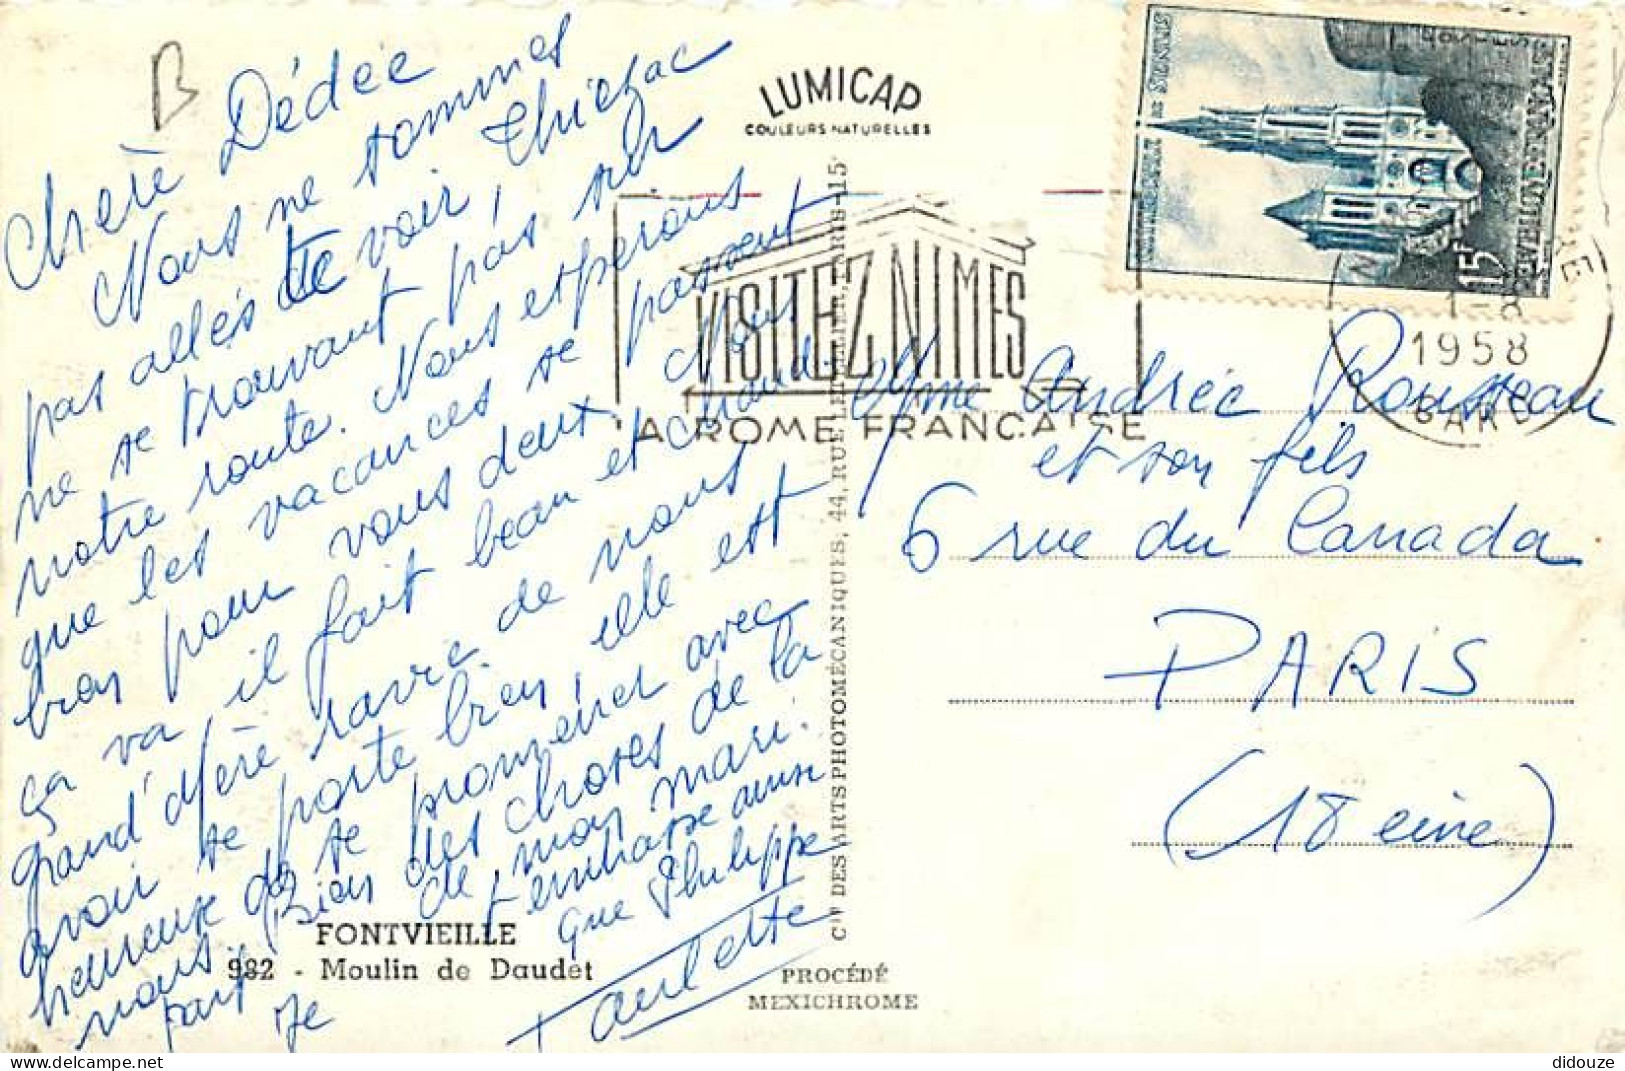 B
Chère Dédée
Nous ne sommes
pas allés te voir, Thiézac
ne se trouvant pas sur
notre route. Nous espérons
que les vacances se passent
bien pour vous deux. Nous
ça va il fait beau et chaud.
grand'Mère ravie de nous
avoir se porte bien, elle est
heureuse de se promener avec
nous. Bien des choses de la
part de mon mari.
Je t'embrasse ainsi
que Philippe
Paulette
FONTVIEILLE
982 - Moulin de Daudet
LUMICAP
COULEURS NATURELLES
Cie DES ARTS PHOTOMÉCANIQUES, 44, RUE LETELLIER, PARIS-15
PROCÉDÉ
MEXICHROME
VISITEZ NIMES
LA ROME FRANCAISE
CATHEDRALE DE SENLIS
POSTES
REPUBLIQUE FRANCAISE
15F
1-8
1958
GARE
Mme Andrée Rousseau
et son fils
6 rue du Canada
PARIS
(18 eme)
didouze